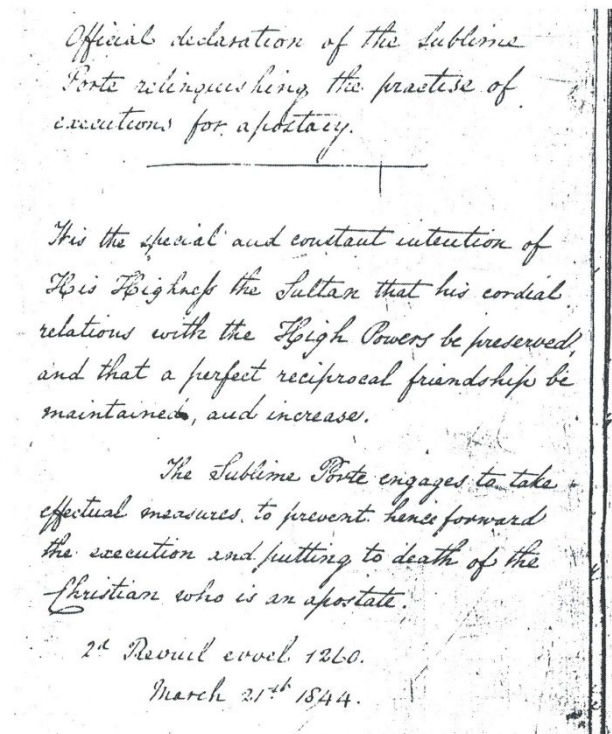 Official declaration of the Sublime
Porte relinquishing the practise of
executions for apostacy.
It is the special and constant intention of
His Highness the Sultan that his cordial
relations with the High Powers be preserved,
and that a perfect reciprocal friendship be
maintained, and increase.
The Sublime Porte engages to take
effectual measures to prevent henceforward
the execution and putting to death of the
Christian who is an apostate.
2d Rewul evvel 1260.
March 21th 1844.